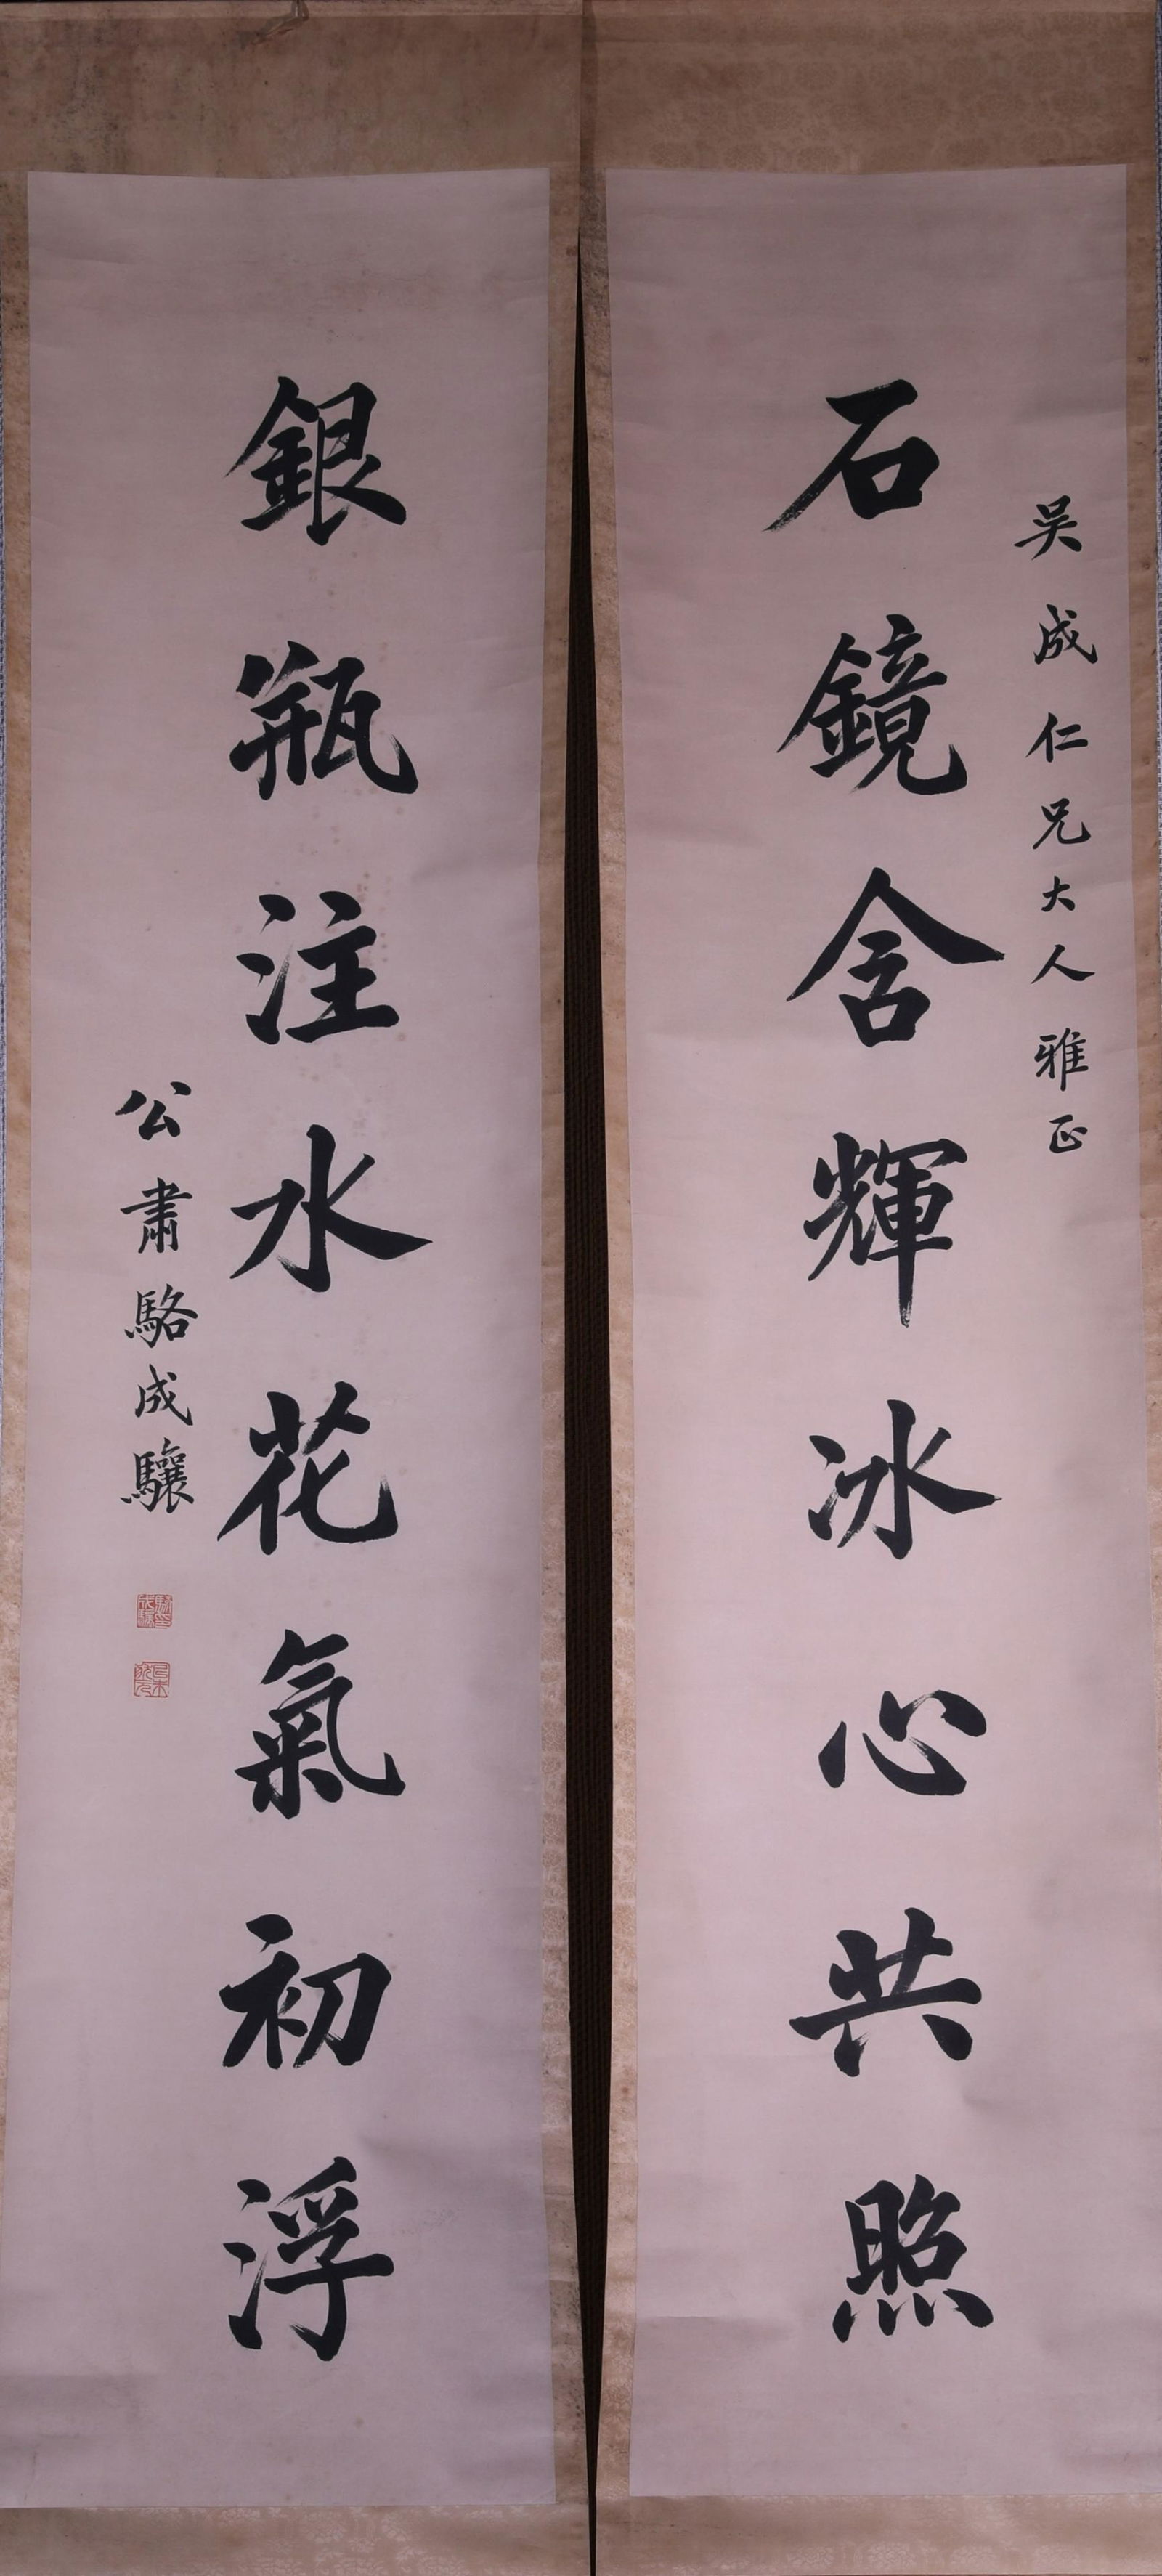 吴成仁兄大人雅正
石鏡含輝冰心共照
銀瓶注水花氣初浮
公肅駱成驤